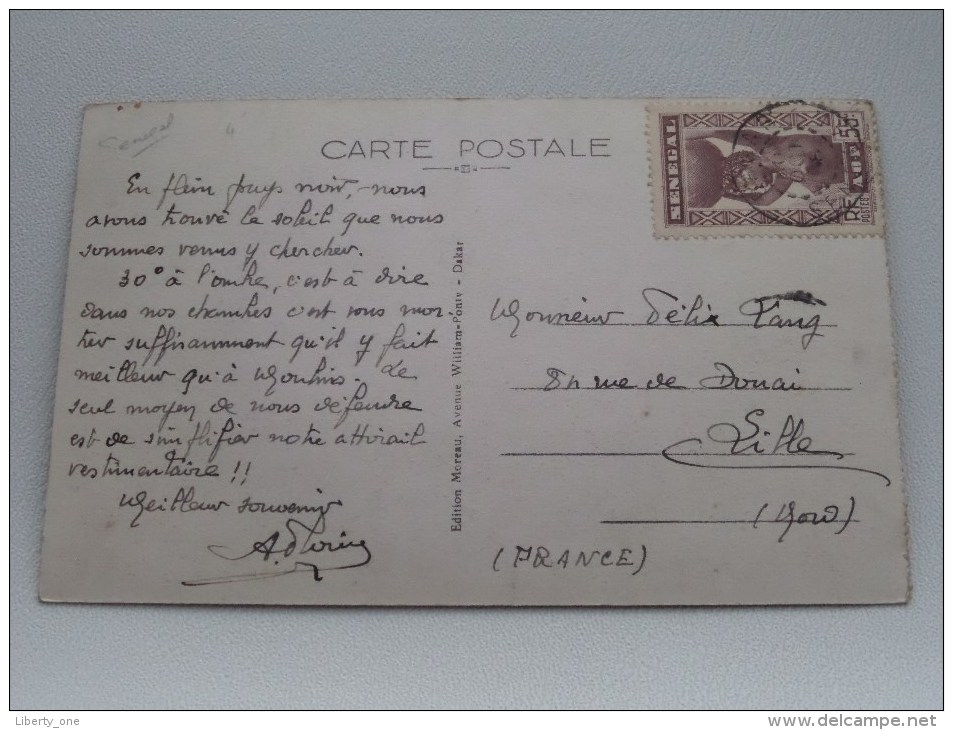 Senegal
4
CARTE POSTALE
SENEGAL
POSTES
En plein pays noir, nous
avons trouvé le soleil que nous
sommes venus y chercher.
30° à l'ombre, c'est à dire
dans nos chambres c'est vous mon-
trer suffisamment qu'il y fait
meilleur qu'à Moulins. Le
seul moyen de nous défendre
est de simplifier notre attirail
vestimentaire !!
Meilleur souvenir
Edition Moreau, Avenue William-Ponty - Dakar
Monsieur Félix Lang
rue de Douai
Lille
(Nord)
(FRANCE)
Liberty_one
www.delcampe.net